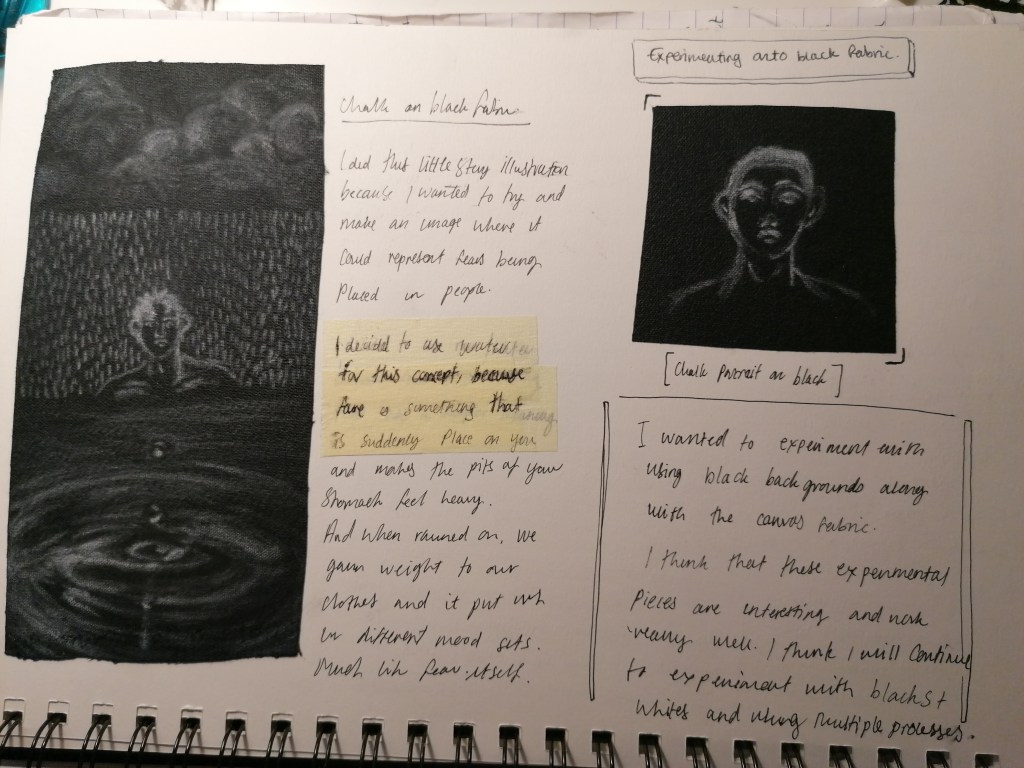 Experimenting onto black fabric.
Chalk on black fabric
I did that little story illustration
because I wanted to try and
make an image where it
could represent fears being
placed in people.
I decided to use
for this concept, because
is something that
is suddenly place on you
and makes the pits of your
stomach feel heavy.
And when rained on, we
gain weight to our
clothes and it put
in different mood sets.
Much like fear itself.
[Chalk Portrait on black]
I wanted to experiment with
using black backgrounds along
with the canvas fabric.
I think that these experimental
pieces are interesting and work
really well. I think I will continue
to experiment with blacks +
whites and using multiple processes.